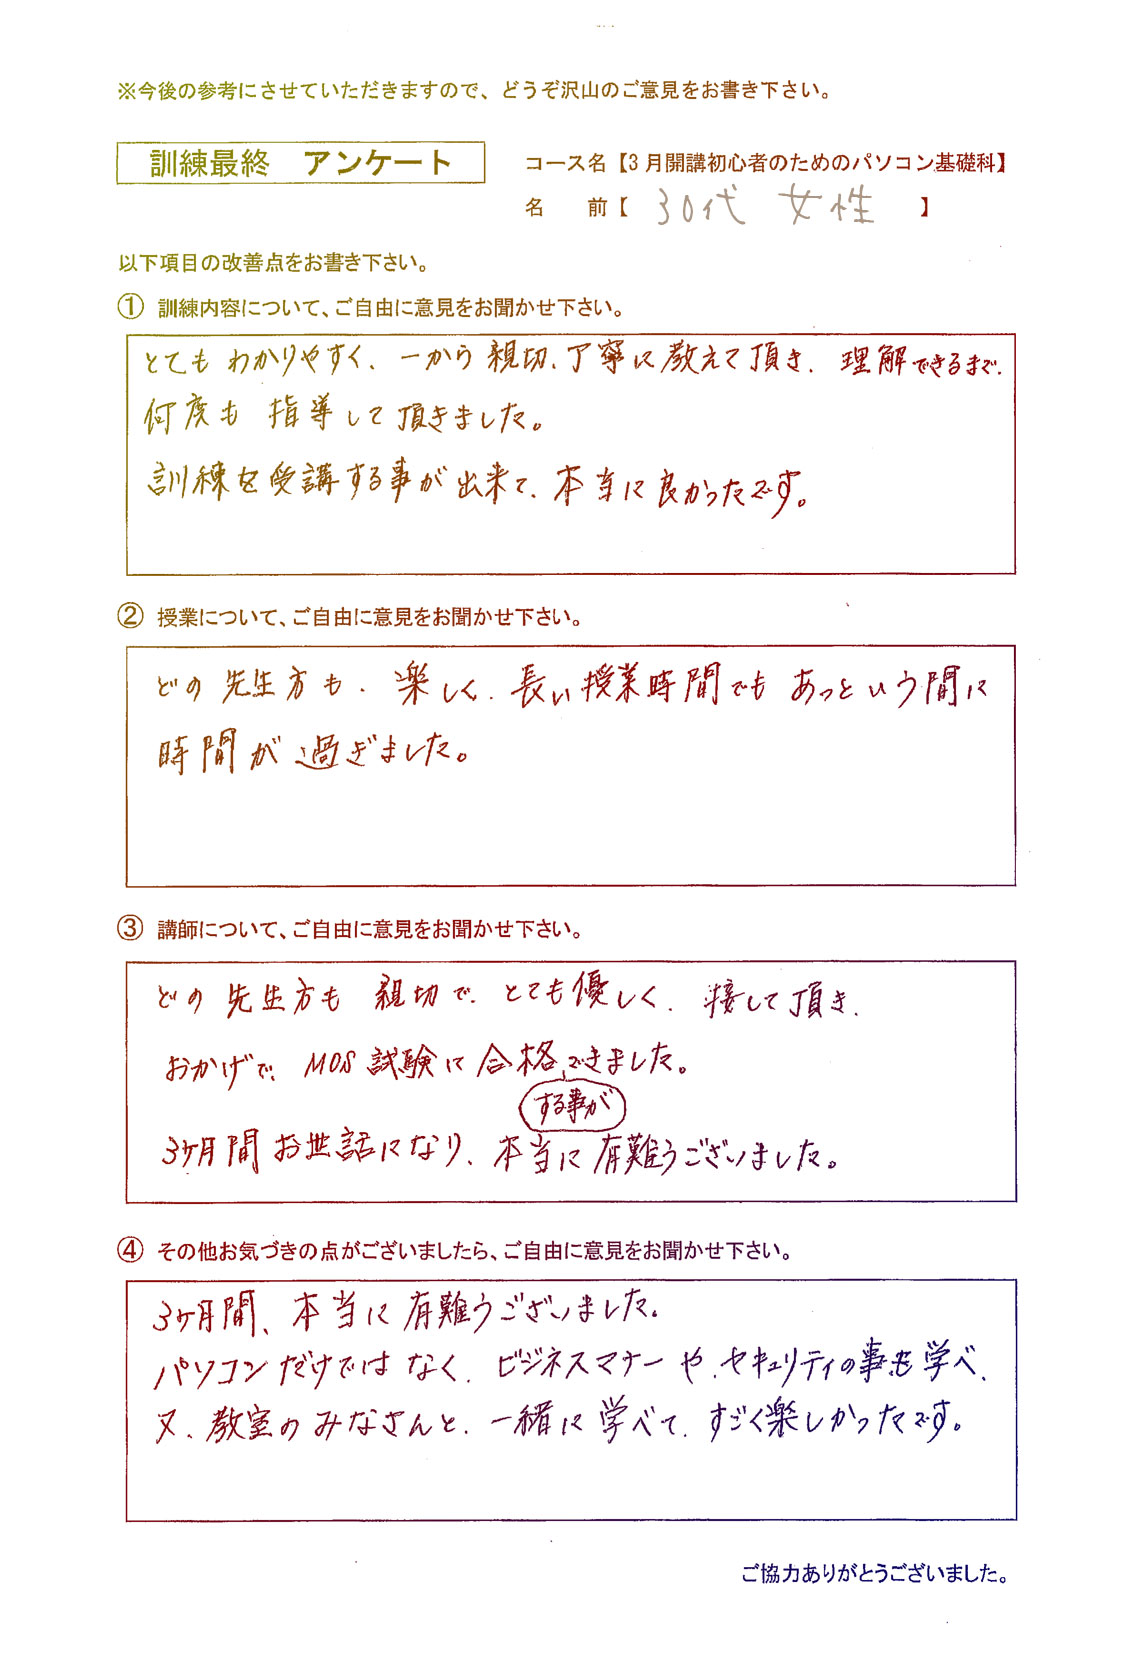 ※今後の参考にさせていただきますので、どうぞ沢山のご意見をお書き下さい。
訓練最終　アンケート
コース名【3月開講初心者のためのパソコン基礎科】
名　前【　30代　女性　】
以下項目の改善点をお書き下さい。
① 訓練内容について、ご自由に意見をお聞かせ下さい。
とても わかりやすく、一から 親切、丁寧に 教えて頂き、理解できるまで、
何度も 指導して 頂きました。
訓練を受講する事が出来て、本当に良かったです。
② 授業について、ご自由に意見をお聞かせ下さい。
どの 先生方も、楽しく、長い授業時間でも あっという間に
時間が 過ぎました。
③ 講師について、ご自由に意見をお聞かせ下さい。
どの 先生方も 親切で、とても優しく、接して頂き、
おかげで、MOS試験に合格できました。
する事が
3ヶ月間 お世話になり、本当に 有難うございました。
④ その他お気づきの点がございましたら、ご自由に意見をお聞かせ下さい。
3ヶ月間、本当に 有難うございました。
パソコンだけではなく、ビジネスマナーや、セキュリティの事も学べ、
又、教室のみなさんと、一緒に学べて、すごく楽しかったです。
ご協力ありがとうございました。